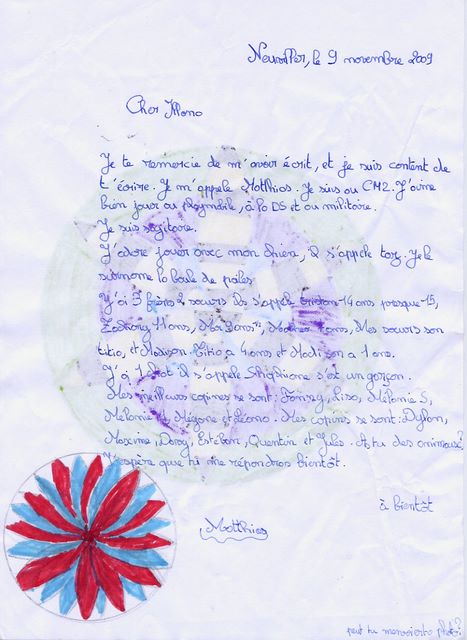 Neuviller, le 9 novembre 2009
Cher Illono
Je te remercie de m'avoir écrit, et je suis content de
t'écrire. Je m'appele Matthias. Je suis au CM2. J'aime
bien jouer au playmobile, à la DS et au militaire.
Je suis sagitaire.
J'adore jouer avec mon chien, il s'appele toz. Je le
surnome la boule de poiles
J'ai 3 frères 2 soeurs Ils s'appele tristan 14 ans presque 15,
Zackary 11 ans, 9 ans, ans, Mes soeurs son
titia, et Madison. Titia a 4 ans et Madi son a 1 ans.
J'ai 1 chat Il s'appele s'est un garçon.
Mes meilleurs copines se sont: Fanny, Lisa, Mélanie S,
Mélanie Mégane et Léana. Mes copains se sont: Dylan,
Maxime, Dorsy, Esteban, Quentin et Jules. A tu des animaux?
J'espère que tu me répondras bientôt.
à bientôt
Matthias
peut tu photo?